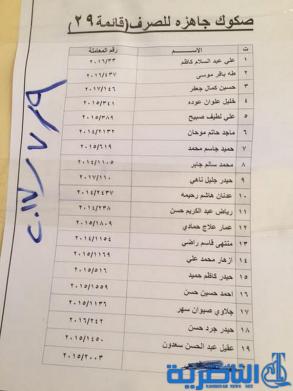 صكوك جاهزه للصرف (قائمة ٢٩)
ت الاســــم رقم المعاملة
١ علي عبد السلام كاظم ٢٠١٦/٣٣
٢ طه باقر موسى ٢٠١٦/٤٣٧
٣ حسين كمال جعفر ٢٠١٧/١٤٦
٤ خليل علوان عوده ٢٠١٥/٣٤١
٥ علي لطيف صبيح ٢٠١٥/٣٨٩
٦ ماجد حاتم موحان ٢٠١٤/٢١٣٢
٧ حميد جاسم محمد ٢٠١٥/٦١٩
٨ محمد سالم جابر ٢٠١٤/١١٠٥
٩ حيدر جليل ناهي ٢٠١٧/١١٠
١٠ عدنان هاشم رحيمه ٢٠١٤/٢٤٣٧
١١ رياض عبد الكريم حسن ٢٠١٤/٢٣٨
١٢ عمار علاج حمادي ٢٠١٥/١٨٠٩
١٣ منتهى قاسم راضي ٢٠١٤/١١٥٤
١٤ ازهار محمد علي ٢٠١٥/١١٦٩
١٥ حيدر كاظم حميد ٢٠١٥/٥١٦
١٦ احمد حسين حسن ٢٠١٥/١٥٥٩
١٧ جلاوي صيوان سهر ٢٠١٥/١١٣٦
١٨ حيدر جرد حسن ٢٠١٦/٢٤٢
١٩ عقيل عبد الحسن سعدون ٢٠١٥/١٤٥٠
٢٠١٥/٢٠٠٣
الناصرية